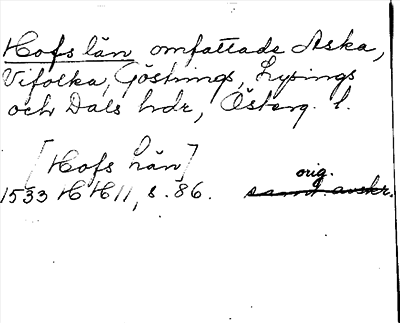 Hofs län omfattade Aska,
Vifolka, Göstrings, Lysings
och Dals hdr, Österg. l.
[Hofs län]
orig.
1533 HH 11, s. 86. samt. avskr.